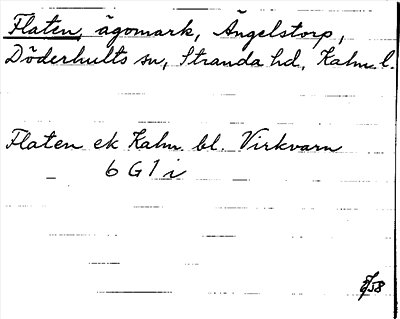 Flaten, ägomark, Ängelstorp,
Döderhults sn, Stranda hd, Kalm. l.
Flaten ek Kalm. bl. Virkvarn
6 G 1 i